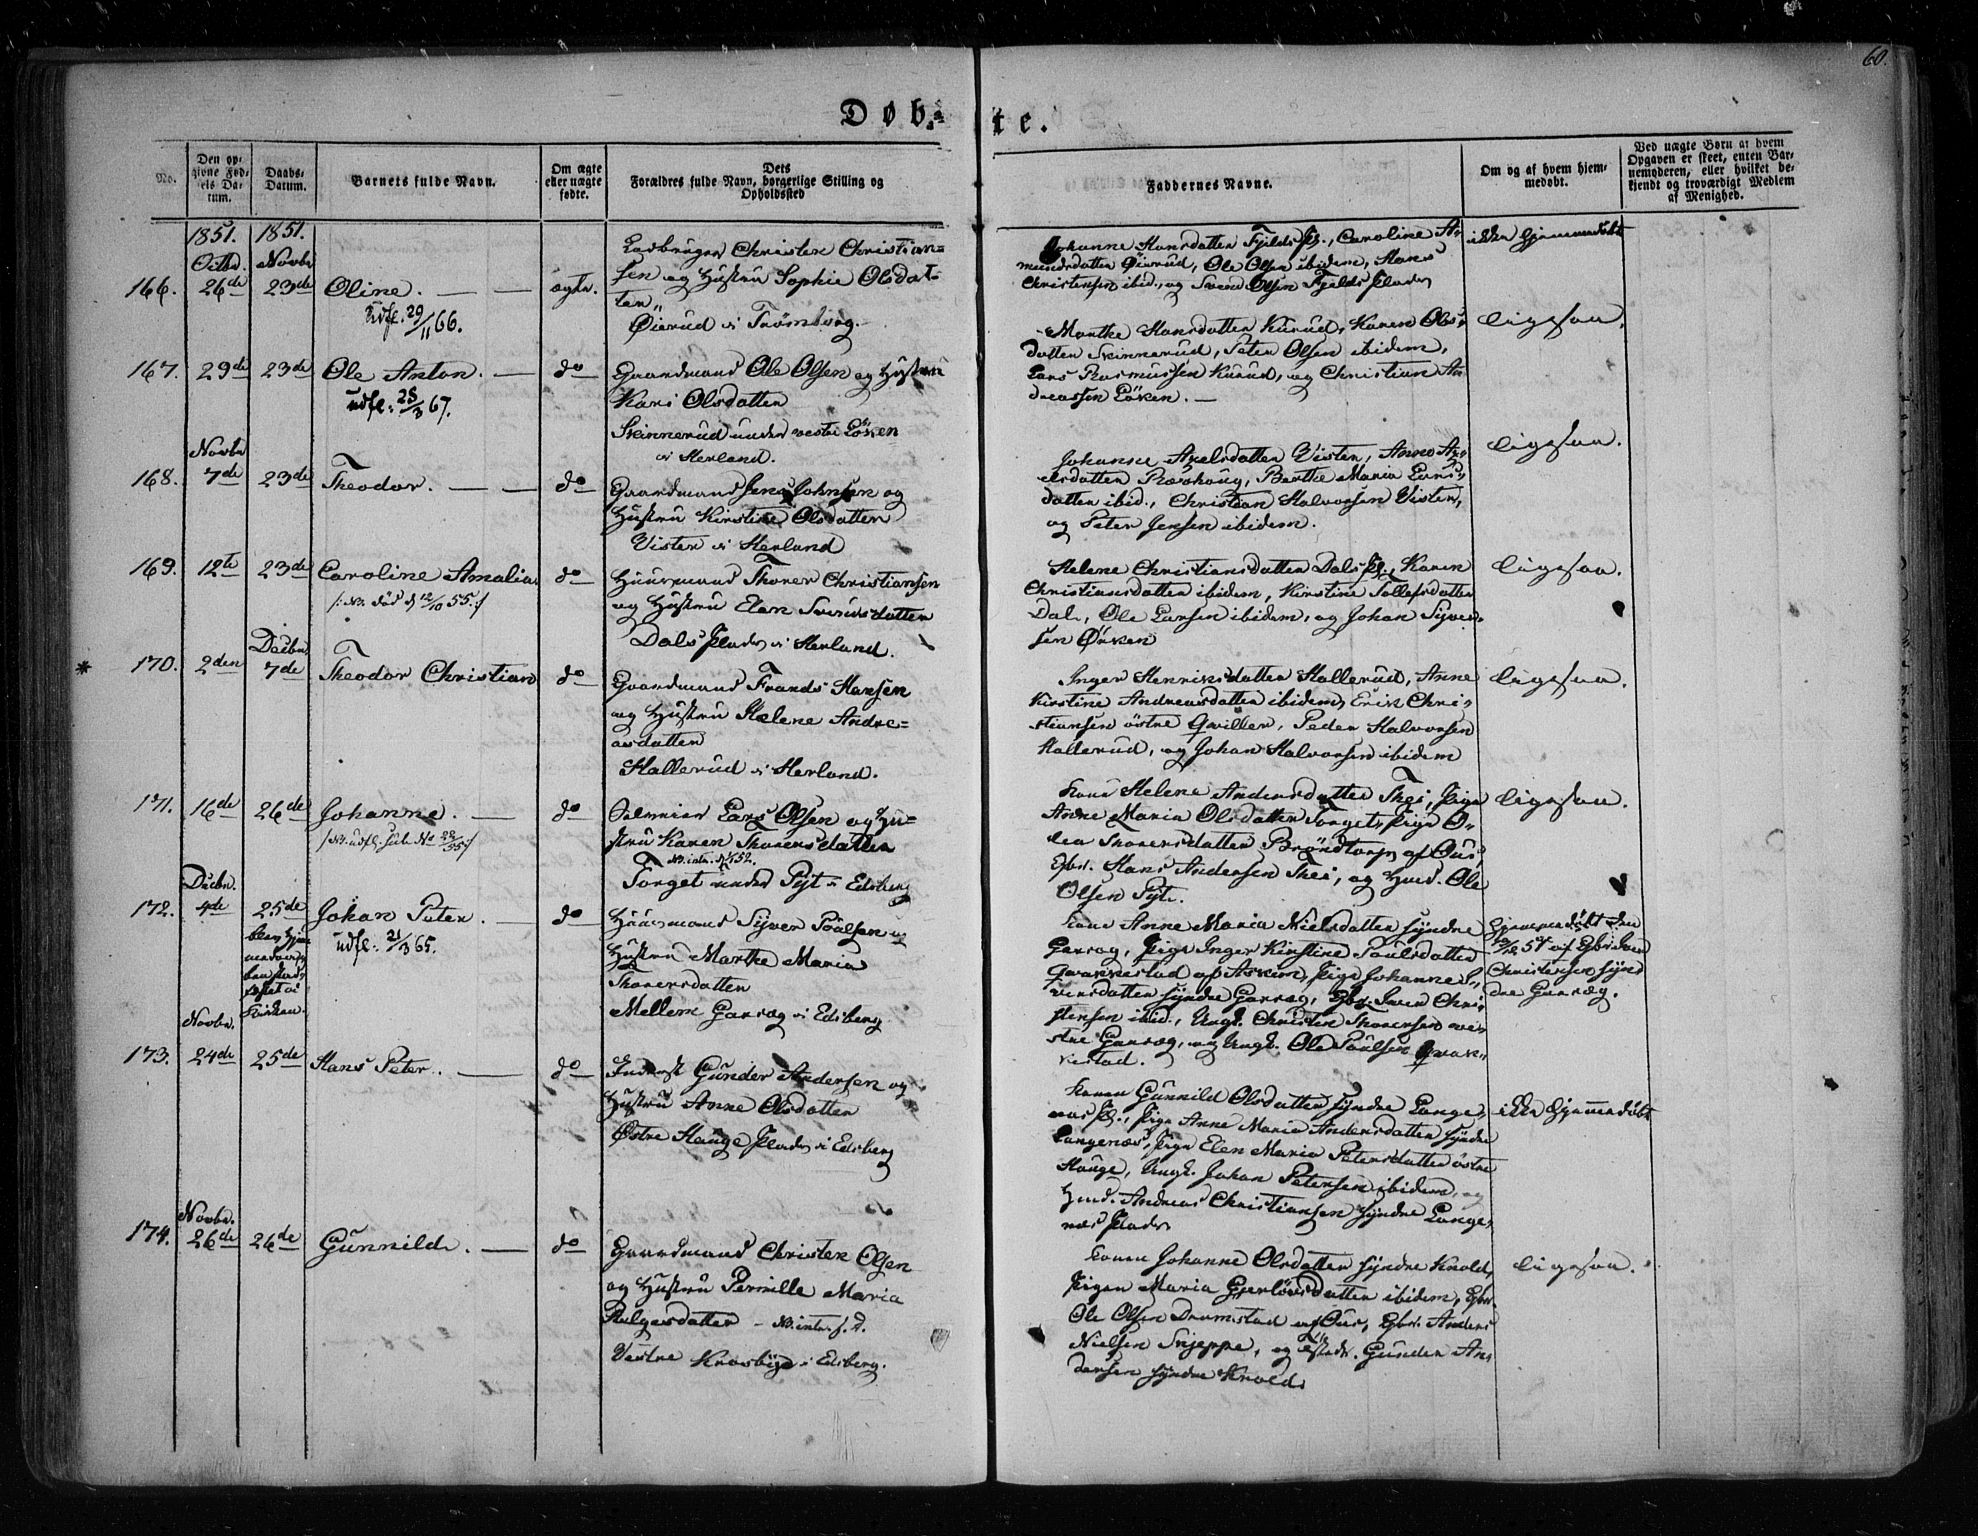 60.
Døb-
te.
No.
Den op-
givne Fød-
sels Da-
tum.
Daabs-
Datum.
Barnets fulde Navn.
Om ægte
eller uægte
fødte.
Dets
Forældres fulde Navn, borgerlige Stilling og
Opholdssted
Faddernes Navne.
Om og af hvem hjem-
medøbt.
Ved uægte Børn af hvem
Opgaven er skeet, enten Bar-
nemoderen, eller hvilket be-
kjendt og troværdigt Medlem
af Menighed.
1851. 1851.
Octbr. Novbr
166. 26de 23de Oline.
udfl. 29/11 66.
ægte.
Christen Christian=
sen og Hustru Sophie Olsdat-
ter
Øierud i Trømborg.
Johanne Hansdatter Fjelds Pl., Caroline A-
mundsdatter Øierud, Ole Olsen ibidem, Hans
Christensen ibid., og Svend Olsen Fjelds Plads
ikke hjemmedøbt
167. 29de 23de Ole Anton.
udfl: 23/3 67.
do
Gaardmand Ole Olsen og Hustru
Kari Olsdatter
Skinnerud under vestre Løken
i Herland.
Marthe Hansdatter Kurud, Karen Ols-
datter Skinnerud, Peter Olsen ibidem,
Lars Rasmussen Kurud, og Christian An-
dreassen Løken.
ligesaa.
Novbr
168. 7de 23de Theodor.
do
Gaardmand Jens Johnsen og
Hustru Kirstine Olsdatter
Vister i Herland
Johanne Axelsdatter Vister, Anne Ax-
elsdatter Ravnhoug, Berthe Maria Lars-
datter ibid., Christian Halvorsen Vister,
og Peter Jensen ibidem.
ligesaa.
169. 12te 23de Caroline Amalia
/: NB. død d 12/10 55. :/
do
Huusmand Thorer Christiansen
og Hustru Elen Sverudsdatter
Dals Plads i Herland.
Helene Christiansdatter Dals Pl., Karen
Christiansdatter ibidem, Kirstine Tollefsdatter
Dal, Ole Larsen ibidem, og Johan Syver-
sen Ørken
ligesaa.
Decbr.
* 170. 2den 7de Theodor Christian
do
Gaardmand Frands Hansen
og Hustru Helene Andre=
asdatter
Hallerud i Herland.
Inger Henriksdatter Hallerud, Anne
Kirstine Andreasdatter ibidem, Erik Chri-
stiansen østre Qviller, Peder Halvorsen
Hallerud, og Johan Halvorsen ibidem
ligesaa.
171. 16de 26de Johanne.
do
Lars Olsen og Hu=
stru Karen Thorersdatter
Torget under Pyt i Edsberg
Kone Helene Andersdatter Thei, Pige
Anne Maria Olsdatter Torget, Pige O-
lea Thorersdatter Brøndtorp af Øus,
Gbr. Hans Andersen Thei, og Hmd. Ole
Olsen Pyt.
ligesaa.
Decbr.
172. 4de 25de Johan Peter.
udfl: 21/3 65.
do
Huusmand Syver Poulsen og
Hustru Marthe Maria
Thorersdatter
Mellem Garseg i Edsberg
Kone Anne Maria Nielsdatter syndre
Garseg, Pige Inger Kirstine Poulsdatter
Qvakkestad af Askim, Pige Johanne S-
vensdatter syndre Garseg, Gbr. Sven Chri-
stensen ibid., Ungk. Christen Thorersen ve-
stre Garseg, og Ungk. Ole Poulsen Qvak-
kestad.
hjemmedøbt den
af Gbr. Sven
Christensen synd
dre Garseg.
Novbr.
173. 24de 25de Hans Peter.
do
Inderst Gunder Andersen og
Hustru Anne Olsdatter
Østre Hauge Plads i Edsberg
Konen Gunnild Olsdatter syndre Lange-
næs Pl., Pige Anne Maria Andersdatter syndre
Langenæs, Pige Elen Maria Petersdatter østre
Hauge, Ungk. Johan Petersen ibidem, og
Hmd. Andreas Christiansen syndre Lange-
næs Plads
ikke hjemmedøbt
Novbr.
174. 26de 26de Gunnild.
do
Gaardmand Christen Olsen
og Hustru Pernille Maria
Helgesdatter
Vestre Krosbye i Edsberg.
Konen Johanne Olsdatter syndre Knold,
Pigen Maria Gjerløvsdatter ibidem, Gbr.
Ole Olsen Dramstad af Øus, Gbr. Anders
Nielsen Skjeppe, og Gunder An-
dersen syndre Knold.
ligesaa.